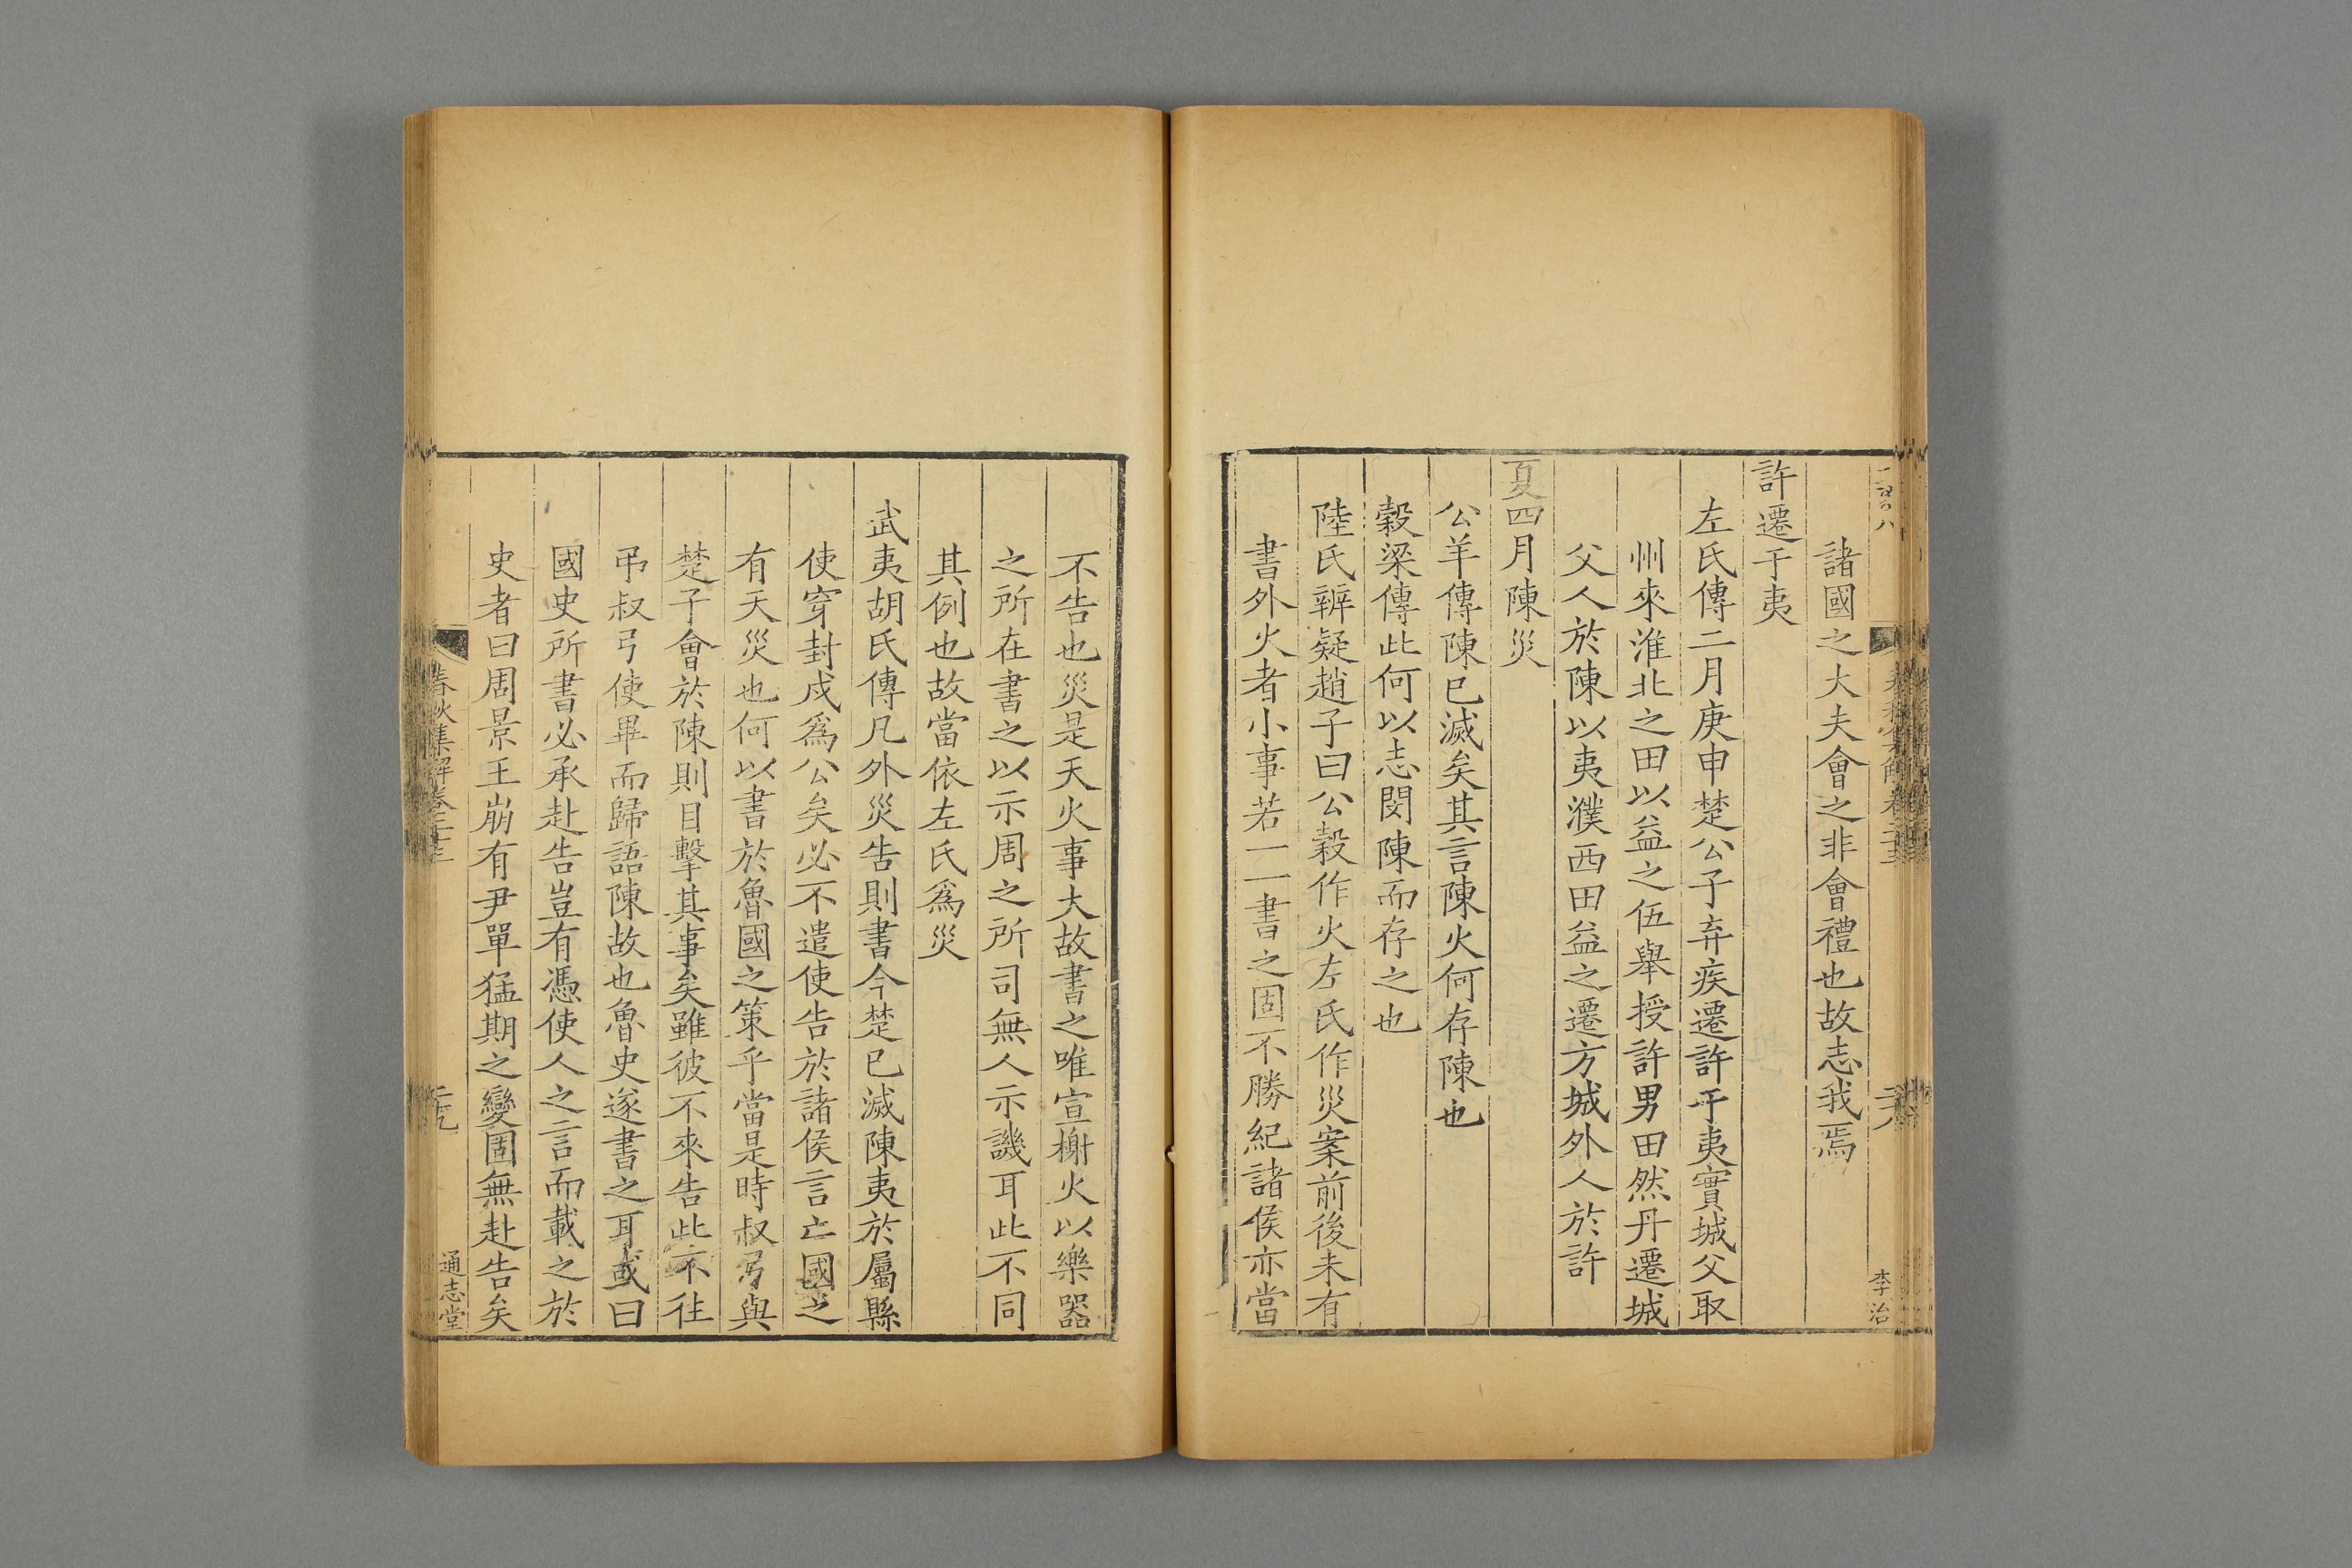 諸國之大夫會之非會禮也故志我焉
許遷于夷
左氏傳二月庚申楚公子弃疾遷許于夷實城父取
州來淮北之田以益之伍舉授許男田然丹遷城
父人於陳以夷濮西田益之遷方城外人於許
夏四月陳災
公羊傳陳已滅矣其言陳火何存陳也
穀梁傳此何以志閔陳而存之也
陸氏辨疑趙子曰公穀作火左氏作災案前後未有
書外火者小事若一一書之固不勝紀諸侯亦當
李治
不告也災是天火事大故書之唯宣榭火以樂器
之所在書之以示周之所司無人示譏耳此不同
其例也故當依左氏爲災
武夷胡氏傳凡外災告則書今楚已滅陳夷於屬縣
使穿封戍爲公矣必不遣使告於諸侯言亡國之
有天災也何以書於魯國之策乎當是時叔弓與
楚子會於陳則目擊其事矣雖彼不來告此不往
弔叔弓使畢而歸語陳故也魯史遂書之耳或曰
國史所書必承赴告豈有憑使人之言而載之於
史者曰周景王崩有尹單猛期之變固無赴告矣
春秋集解卷二十三
通志堂